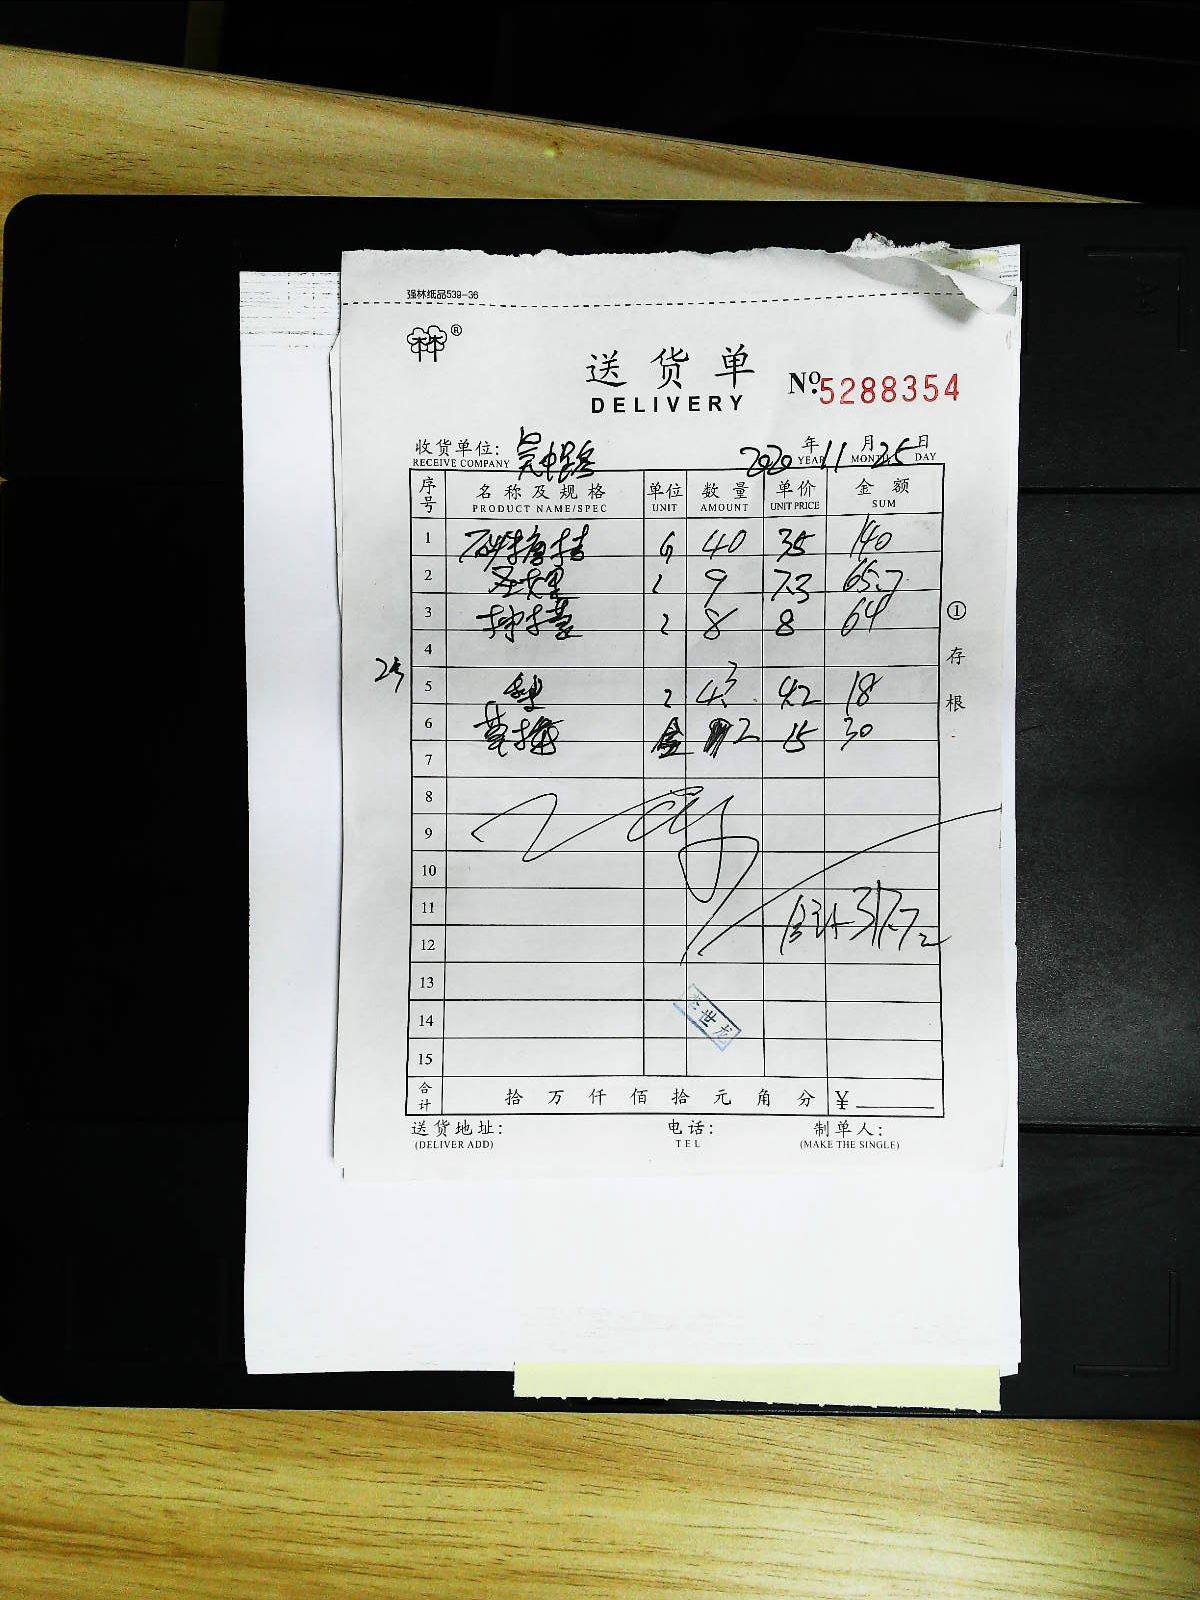 强林纸品539-36
林®
送货单
DELIVERY
No.5288354
收货单位: 吴中路 2020年11月25日
RECEIVE COMPANY YEAR MONTH DAY
序号 名称及规格 单位 数量 单价 金额
PRODUCT NAME/SPEC UNIT AMOUNT UNIT PRICE SUM
1 40 35 140
2 9 7.3 65.7
3 8 8 64
4
5 4.3 4.2 18
6 2 15 30
7
8
9
10
11 合计317.7元
12
13
14
15
世龙
合计 拾万仟佰拾元角分 ¥
送货地址: 电话: 制单人:
(DELIVER ADD) TEL (MAKE THE SINGLE)
①存根